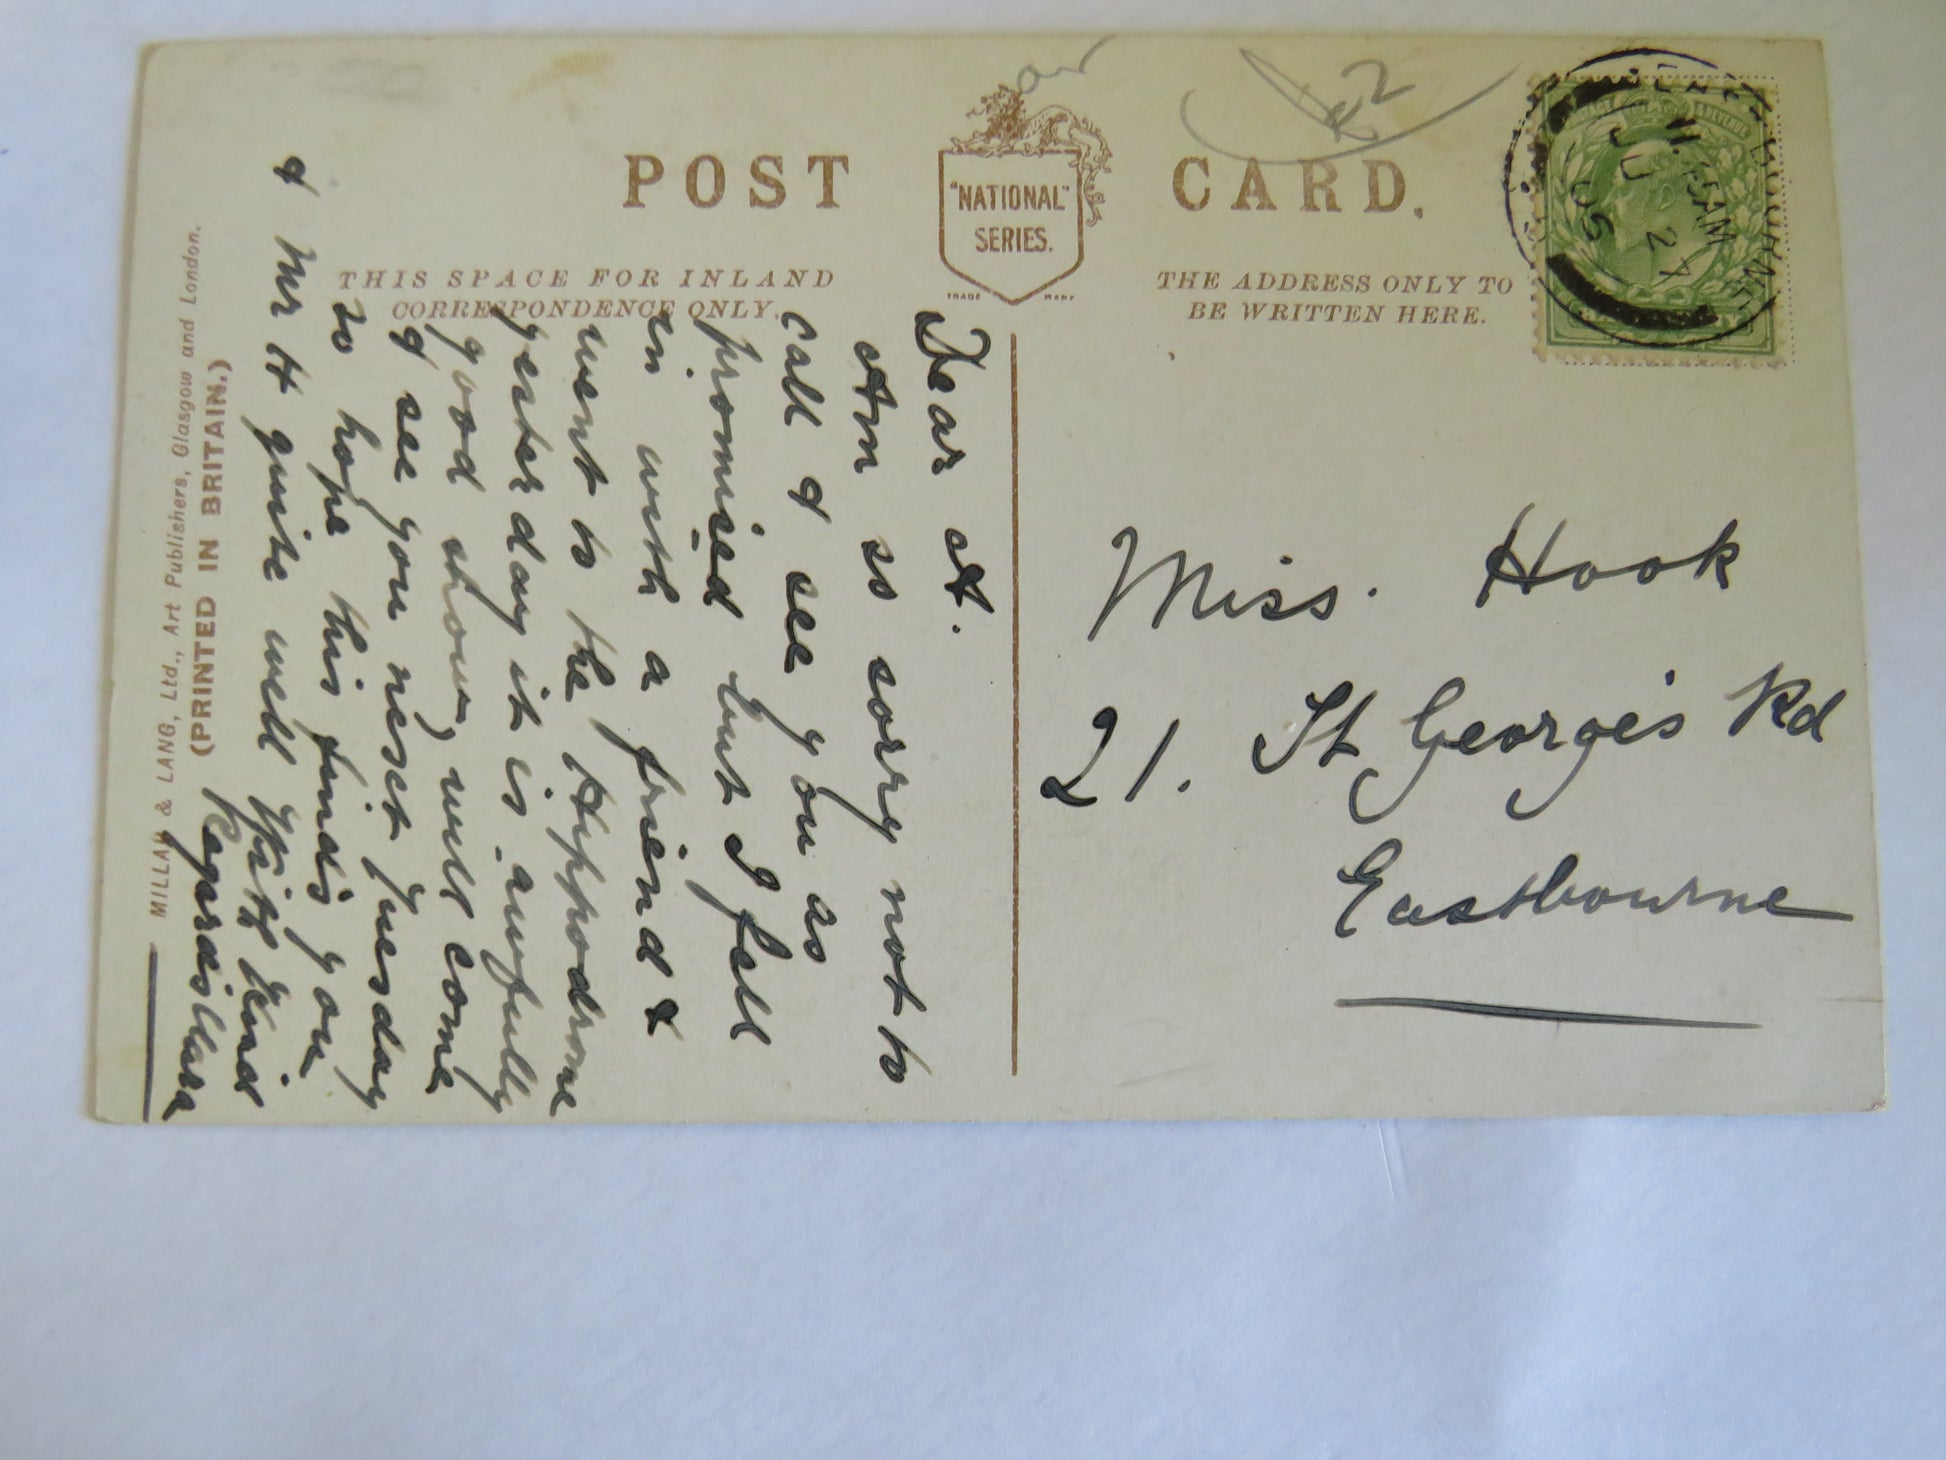 POST CARD.
"NATIONAL"
SERIES.
TRADE MARK
THIS SPACE FOR INLAND
CORRESPONDENCE ONLY.
THE ADDRESS ONLY TO
BE WRITTEN HERE.
EASTBOURNE
11. 15AM
JU 27
£2
Dear A.
Am so sorry not to
call & see you as
promised but I fell
in with a friend &
went to the Hippodrome
yesterday it is awfully
good show, will come
& see you next Tuesday
so hope this finds you
& Mr H quite well With Kind
Regards Clara
Miss. Hook
21. St George's Rd
Eastbourne
MILLAR & LANG, Ltd., Art Publishers, Glasgow and London.
(PRINTED IN BRITAIN.)